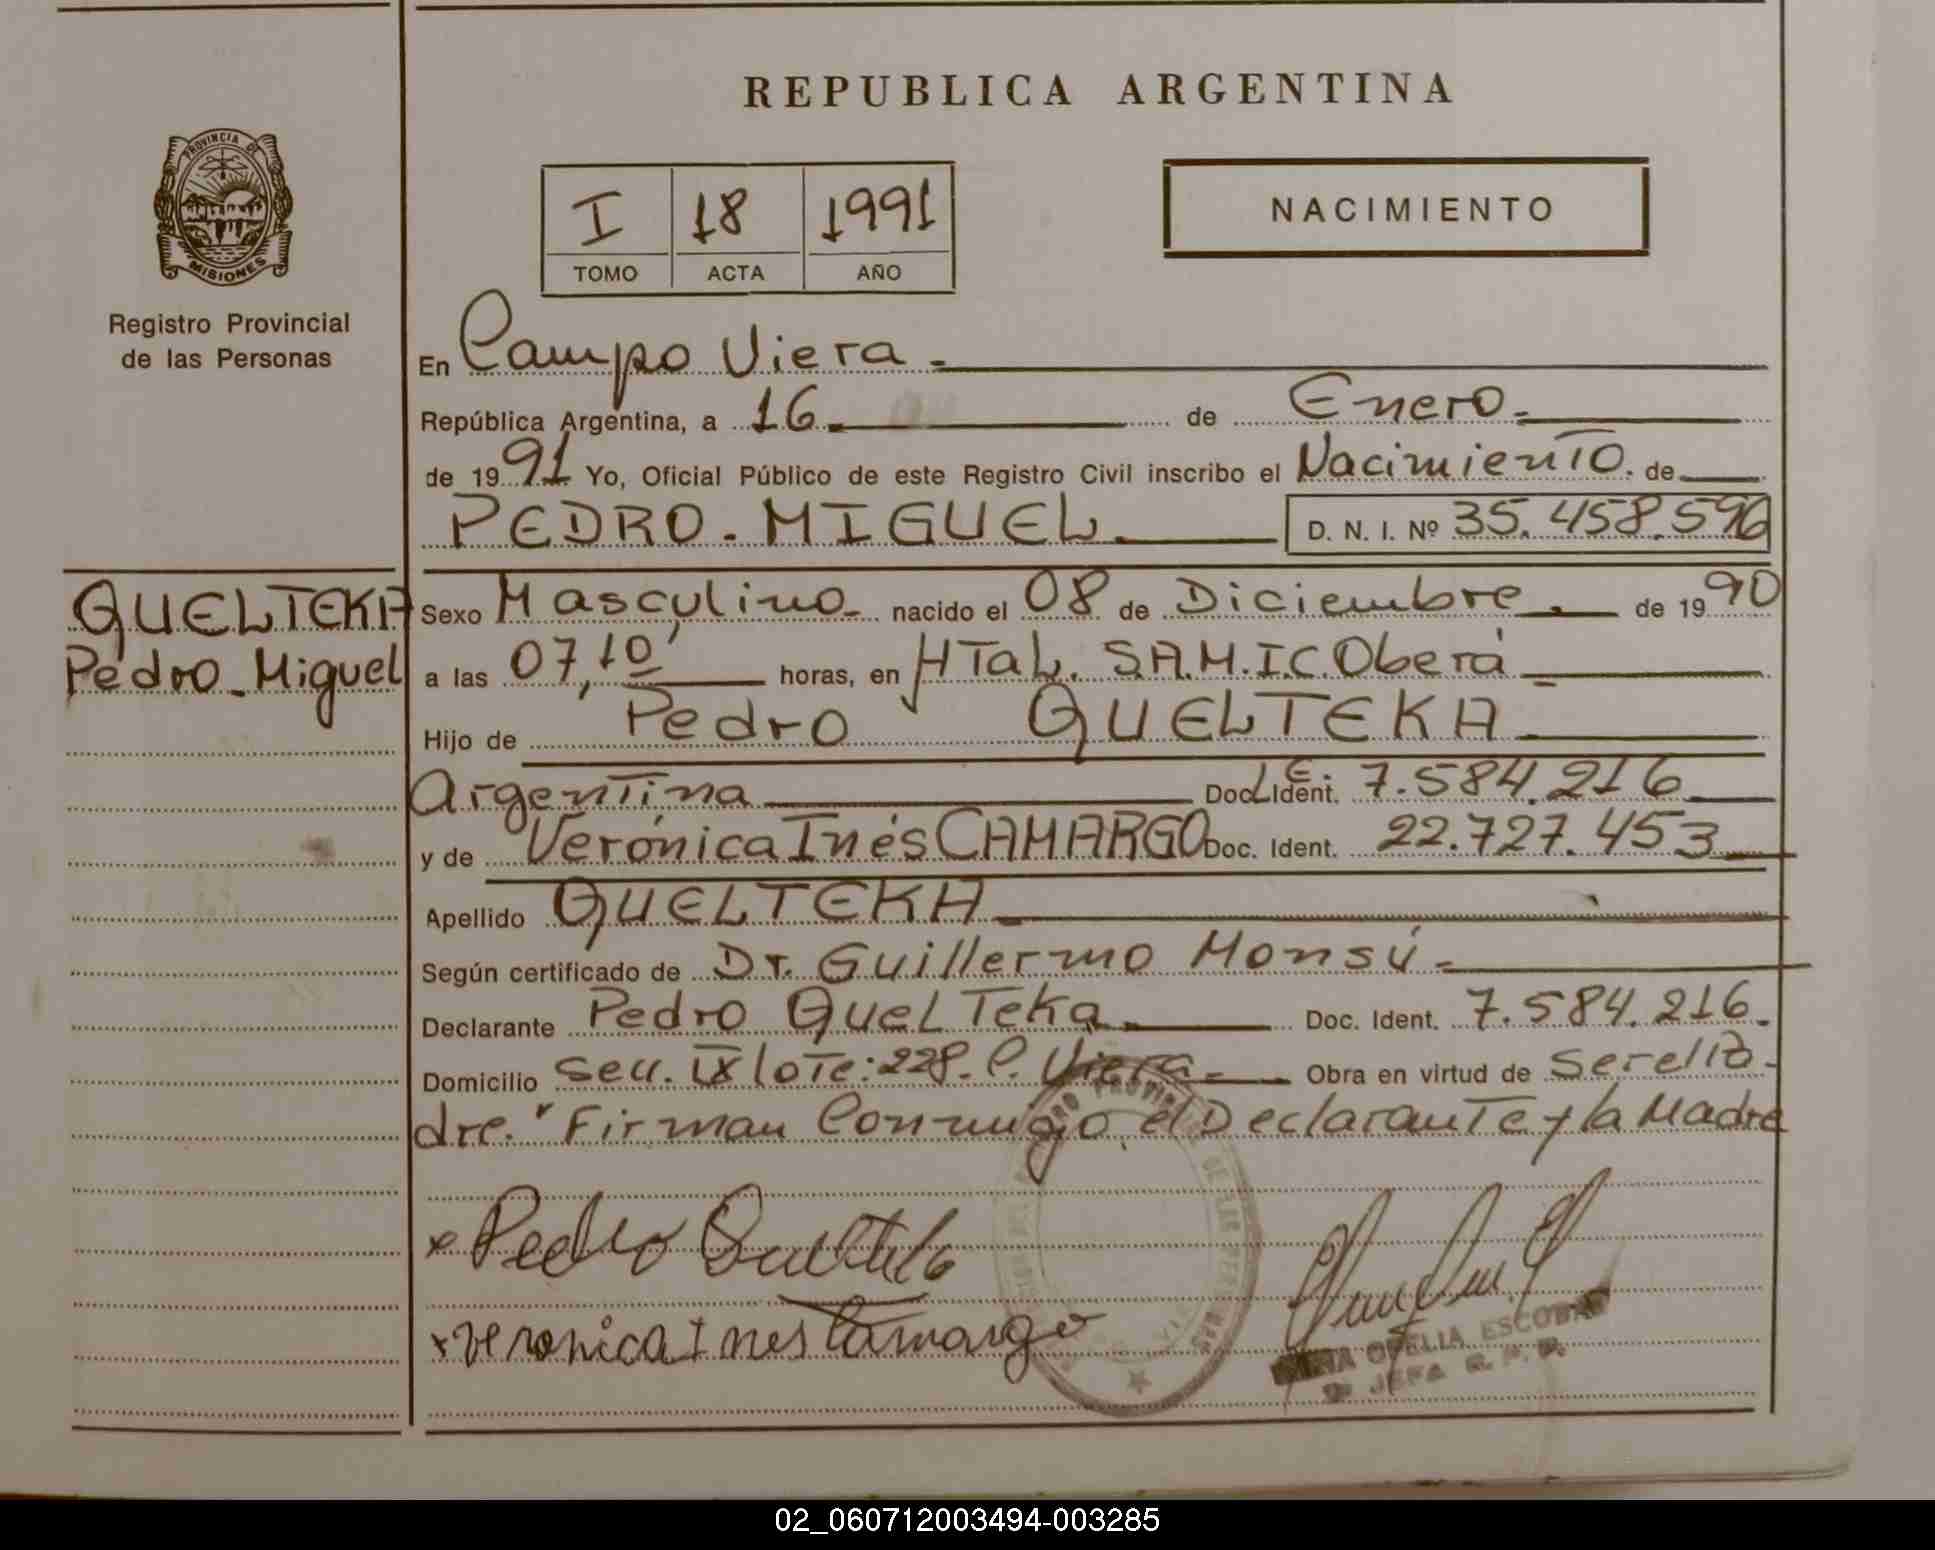 REPUBLICA ARGENTINA
PROVINCIA DE
MISIONES
Registro Provincial
de las Personas
I 18 1991
TOMO ACTA AÑO
NACIMIENTO
En Campo Viera.
República Argentina, a 16. de Enero.
de 1991 Yo, Oficial Público de este Registro Civil inscribo el Nacimiento. de
PEDRO. MIGUEL D. N. I. Nº 35.458.596
QUELTEKA
Pedro Miguel
Sexo Masculino nacido el 08 de Diciembre. de 1990
a las 07,10' horas, en HTaL. S.A.M.I.C. Oberá
Hijo de Pedro QUELTEKA
Argentina Doc. Ident. L.E. 7.584.216
y de Verónica Inés CAMARGO Doc. Ident. 22.727.453
Apellido QUELTEKA
Según certificado de Dr. Guillermo Monsú
Declarante Pedro QuelTeka Doc. Ident. 7.584.216.
Domicilio Secc. IX loTe: 228. C. Viera Obra en virtud de Ser el Pa-
dre. Firman Conmigo el Declarante y la Madre
x Pedro
x Veronica Ines Camargo
OFELIA ESCOBAR
JEFA R. P. P.
02_060712003494-003285